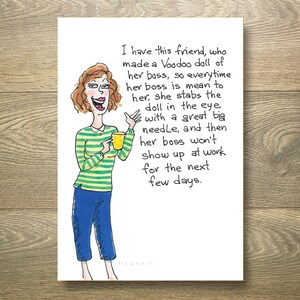 I have this friend, who
made a Voodoo doll of
her boss, so everytime
her boss is mean to
her, she stabs the
doll in the eye
with a great big
needle, and then
her boss won't
show up at work
for the next
few days.